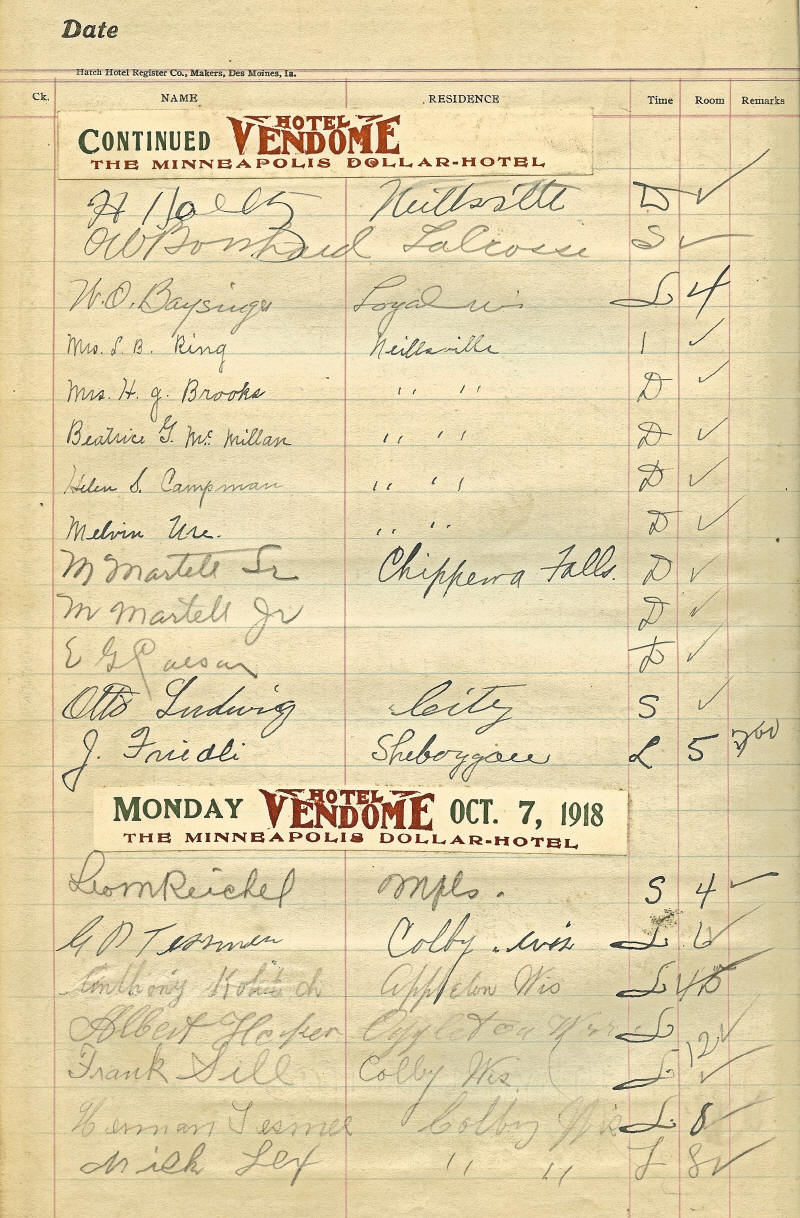 Date
Hatch Hotel Register Co., Makers, Des Moines, Ia.
Ck. NAME RESIDENCE Time Room Remarks
CONTINUED HOTEL VENDOME
THE MINNEAPOLIS DOLLAR-HOTEL
H Neillsville D ✓
LaCrosse S ✓
W.O. Baysinger Loyal wis L 4
Mrs. S. B. King Neillsville 1 ✓
Mrs. H. J. Brooks " " D ✓
Beatrice G. Mc Millan " " D ✓
Helen S. Campman " " D ✓
Melvin Ure. " " D ✓
M Martell Sr Chippewa Falls. D ✓
M Martell Jr D ✓
E G D ✓
Otto Ludwig City S ✓
J. Friedli Sheboygan L 5
MONDAY HOTEL VENDOME OCT. 7, 1918
THE MINNEAPOLIS DOLLAR-HOTEL
Leo M Reichel Mpls. S 4 ✓
G P Tesmer Colby Wis L 6 ✓
Anthony Appleton Wis L
Albert L
Frank Sill Colby Wis. L 12 ✓
Herman Tesmer Colby Wis L 8 ✓
Nick Lex " " L 8 ✓